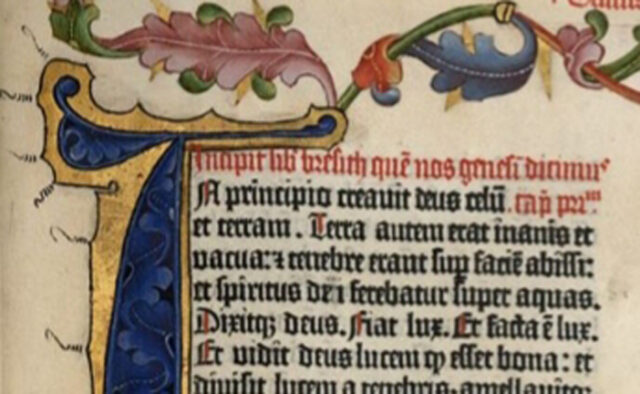 Incipit lib bresith quē nos genesi dicimus
A principio creavit deus celū. cap prim
et terram. Terra autem erat inanis et
vacua: ⁊ tenebre erant sup faciē abissi:
et spiritus dn̄i ferebatur super aquas.
Dixitq; deus. Fiat lux. Et facta ē lux.
Et vidit deus lucem ꝙ esset bona: et
divisit lucem a tenebris · appellavitq;